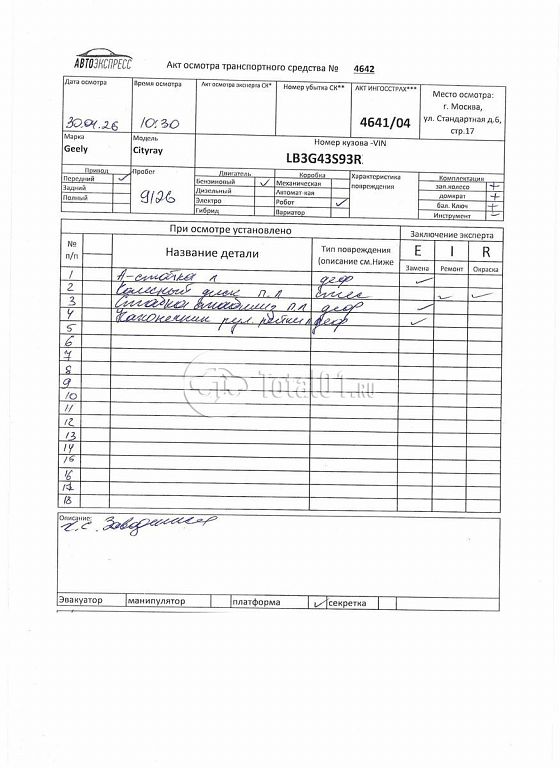 АВТОЭКСПРЕСС
Акт осмотра транспортного средства № 4642
Дата осмотра
Время осмотра
Акт осмотра эксперта СК*
Номер убытка СК**
АКТ ИНГОССТРАХ***
Место осмотра:
г. Москва,
ул. Стандартная д.6,
стр.17
10:30
4641/04
Марка
Модель
Номер кузова -VIN
Geely
Cityray
LB3G43S93R
Привод
Пробег
Двигатель
Коробка
Характеристика
повреждения
Комплектация
Передний ✓
Бензиновый ✓
Механическая
зап.колесо +
Задний
9126
Дизельный
Автомат-кая
домкрат +
Полный
Электро
Робот ✓
бал. Ключ +
Гибрид
Вариатор
Инструмент
При осмотре установлено
Заключение эксперта
№
п/п
Название детали
Тип повреждения
(описание см.Ниже
E I R
Замена Ремонт Окраска
1 А-стойка л деф ✓
2 диск п.л ✓ ✓
3 Стойка п.л деф ✓
4 Наконечник рул. рейки л деф ✓
5
6
7
8
9
10
11
12
13
14
15
16
17
18
Total01.RU
Описание:
Эвакуатор манипулятор платформа ✓ секретка